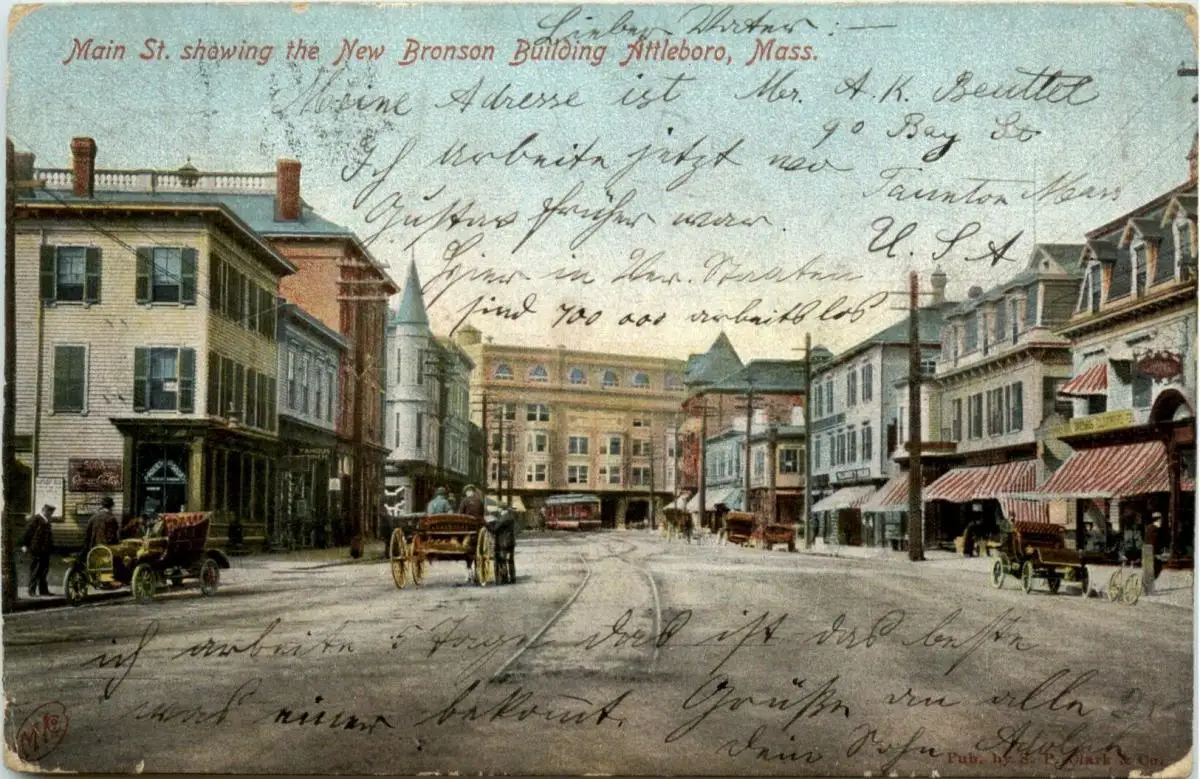 Lieber Vater : —
Main St. showing the New Bronson Building Attleboro, Mass.
Meine Adresse ist Mr. A. K. Beuttel
90 Bay St
Ich arbeite jetzt wo
Taunton Mass
Gustav früher war.
U. S. A
Hier in Ver. Staaten
sind 700 000 arbeitslos
FAMOUS
ich arbeite 5 Tage das ist das beste
was einer bekomt. Grüße an alle
dein Sohn Adolph
Pub. by S. P. Clark & Co.